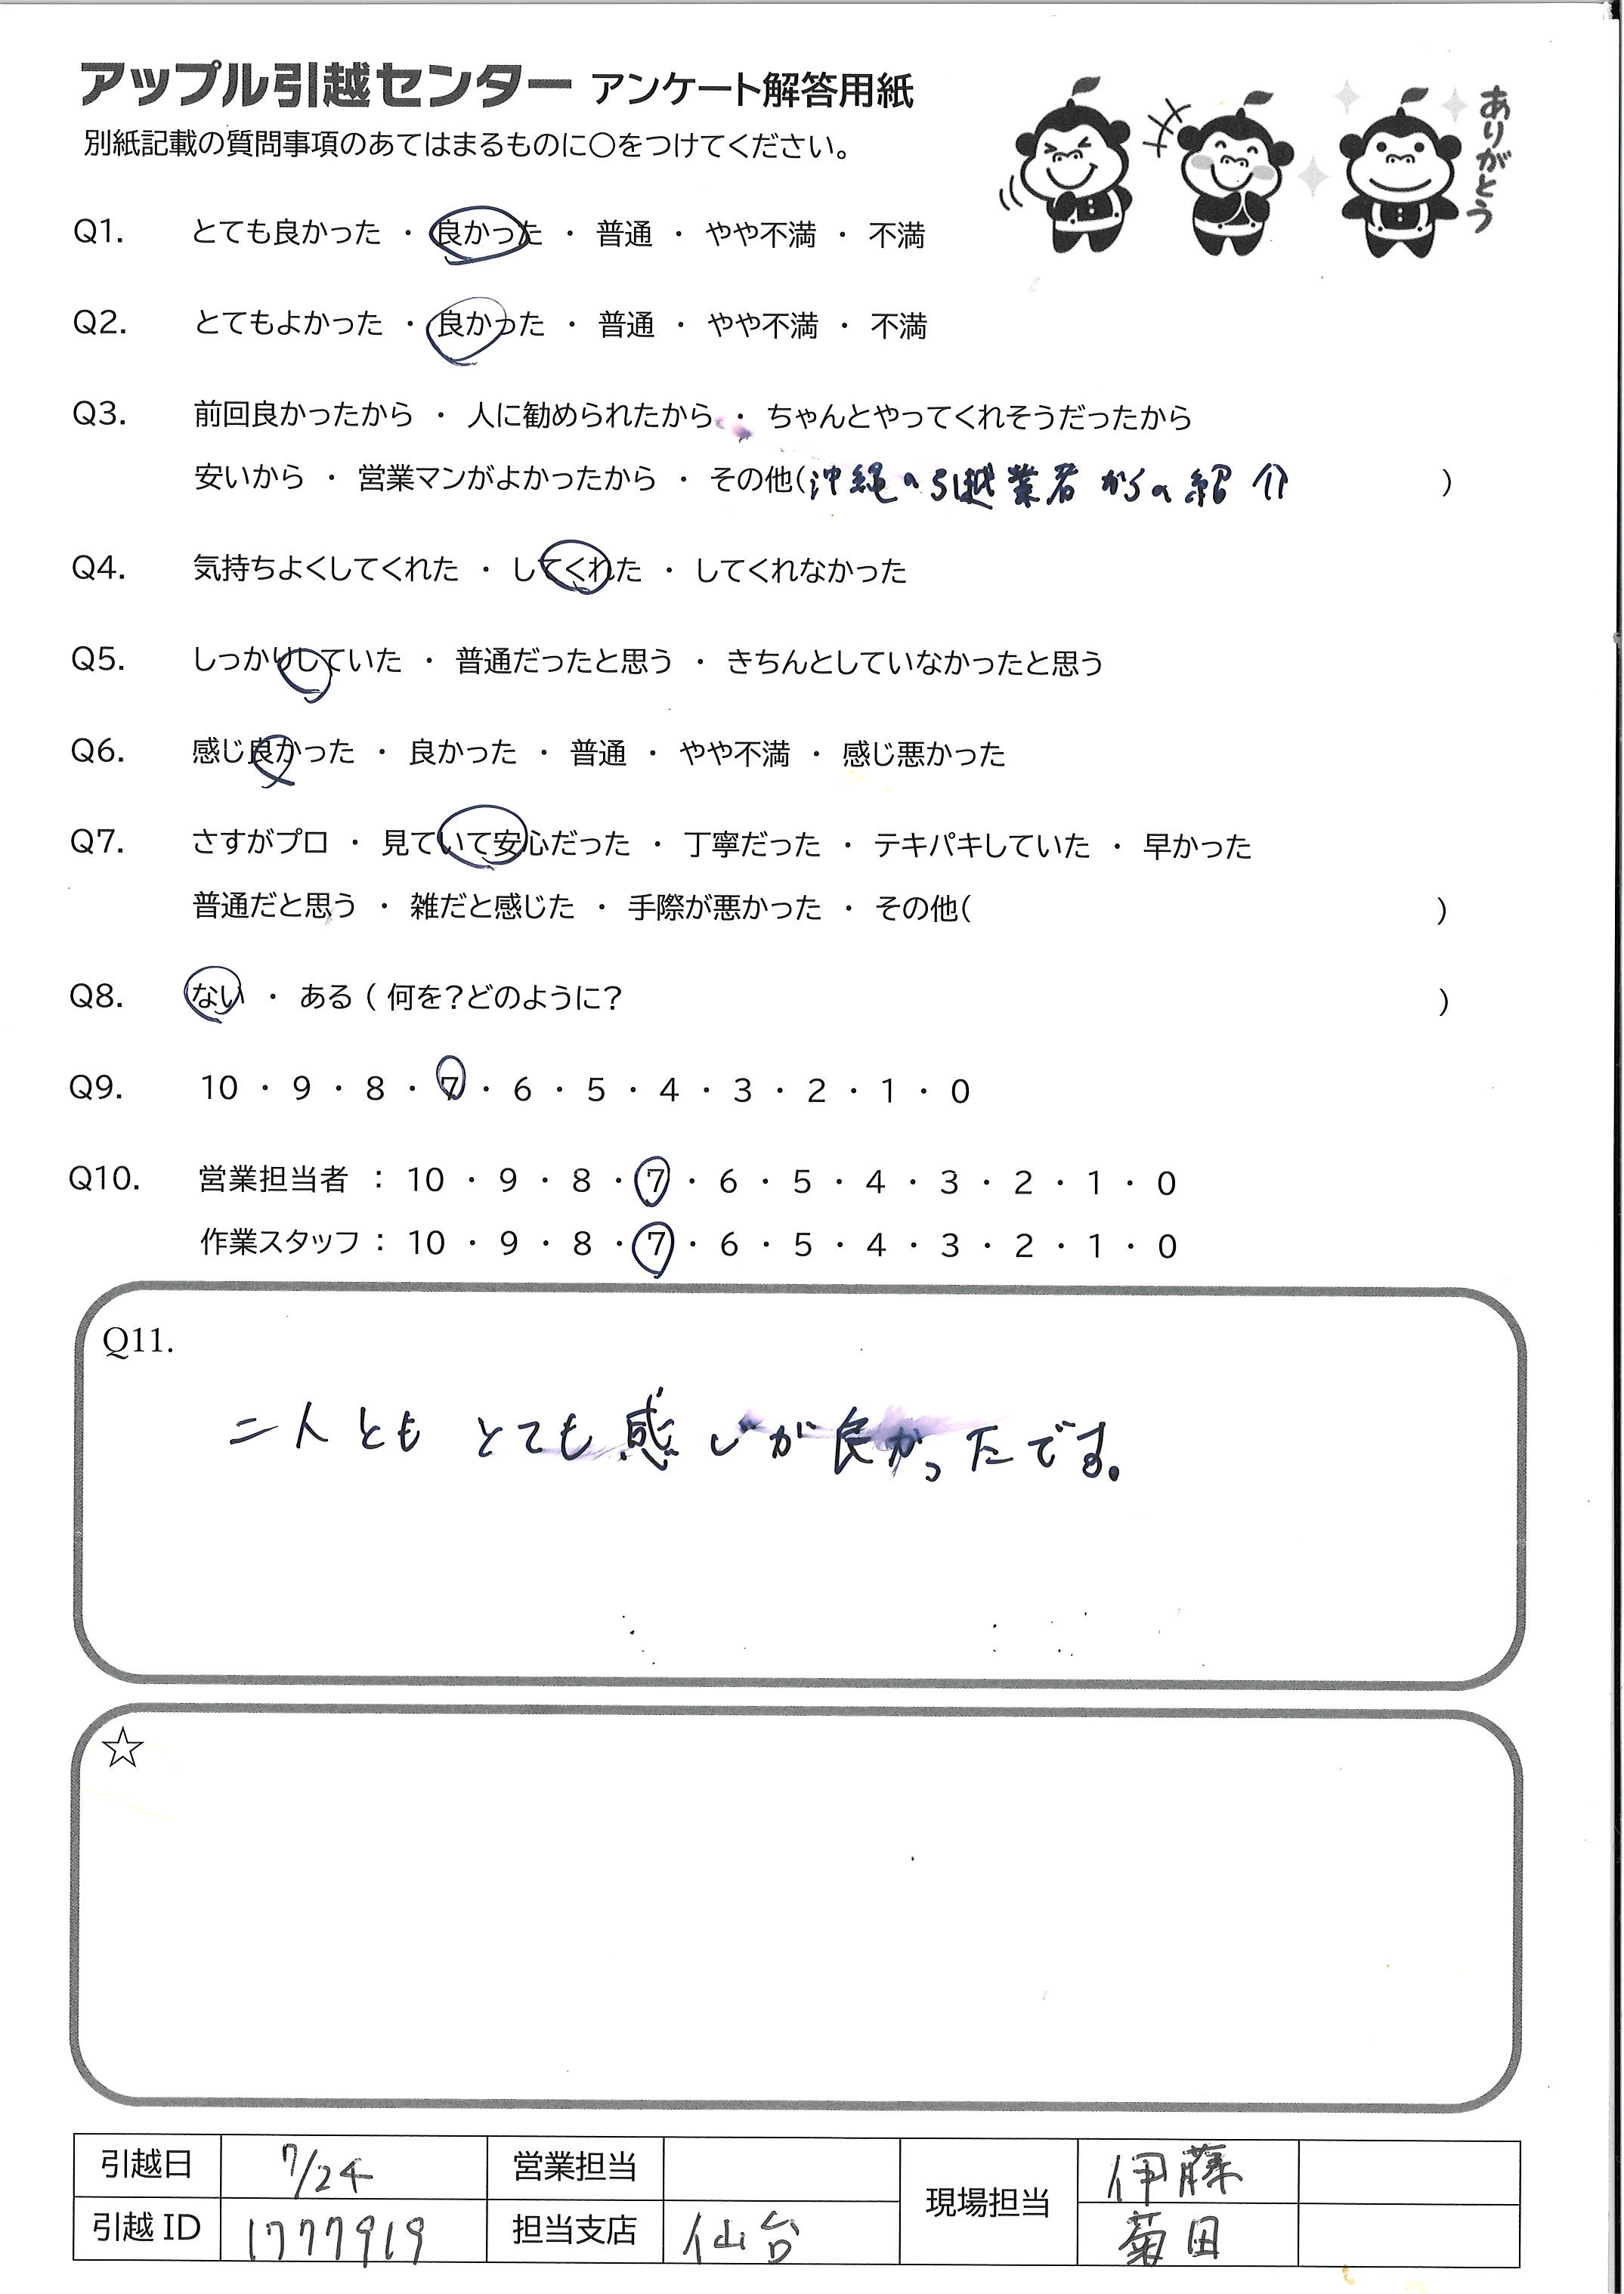 アップル引越センター アンケート解答用紙
別紙記載の質問事項のあてはまるものに〇をつけてください。
ありがとう
Q1. とても良かった ・ 良かった ・ 普通 ・ やや不満 ・ 不満
Q2. とてもよかった ・ 良かった ・ 普通 ・ やや不満 ・ 不満
Q3. 前回良かったから ・ 人に勧められたから ・ ちゃんとやってくれそうだったから
安いから ・ 営業マンがよかったから ・ その他(沖縄の引越業者からの紹介 )
Q4. 気持ちよくしてくれた ・ してくれた ・ してくれなかった
Q5. しっかりしていた ・ 普通だったと思う ・ きちんとしていなかったと思う
Q6. 感じ良かった ・ 良かった ・ 普通 ・ やや不満 ・ 感じ悪かった
Q7. さすがプロ ・ 見ていて安心だった ・ 丁寧だった ・ テキパキしていた ・ 早かった
普通だと思う ・ 雑だと感じた ・ 手際が悪かった ・ その他( )
Q8. ない ・ ある ( 何を?どのように? )
Q9. 10 ・ 9 ・ 8 ・ 7 ・ 6 ・ 5 ・ 4 ・ 3 ・ 2 ・ 1 ・ 0
Q10. 営業担当者 : 10 ・ 9 ・ 8 ・ 7 ・ 6 ・ 5 ・ 4 ・ 3 ・ 2 ・ 1 ・ 0
作業スタッフ : 10 ・ 9 ・ 8 ・ 7 ・ 6 ・ 5 ・ 4 ・ 3 ・ 2 ・ 1 ・ 0
Q11.
二人とも とても感じが良かったです。
☆
引越日 7/24 営業担当 現場担当 伊藤
引越ID 1777919 担当支店 仙台 菊田